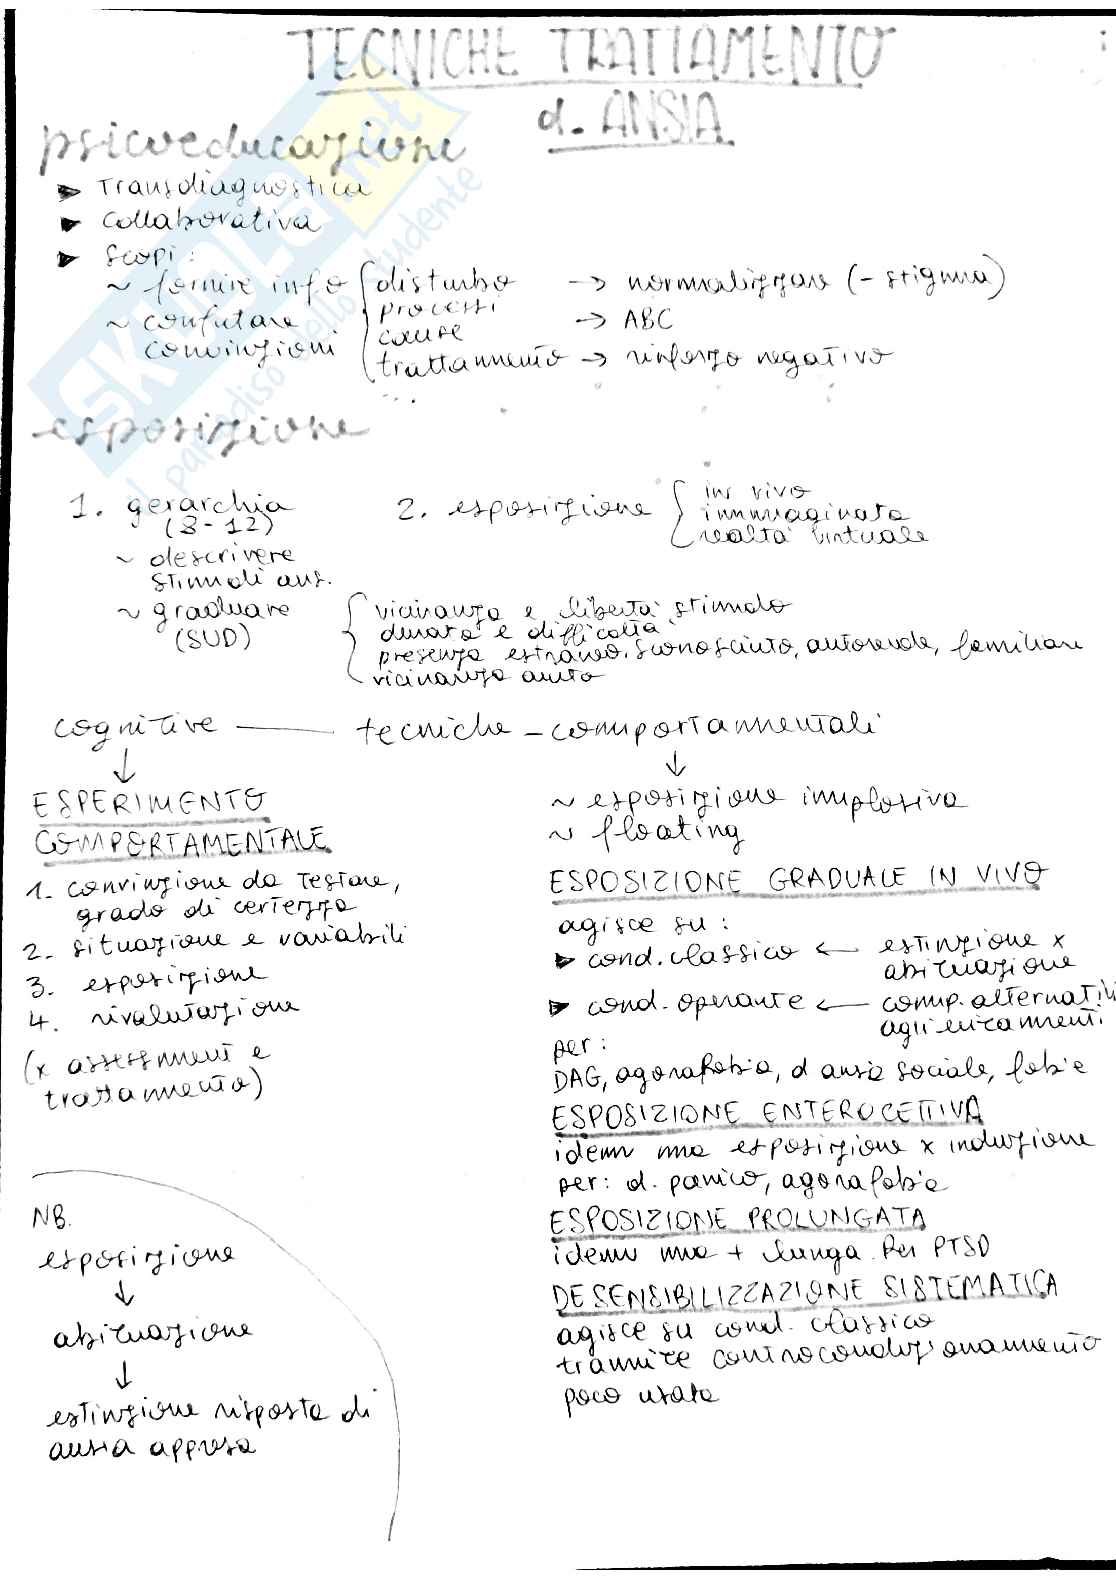 TECNICHE TRATTAMENTO
d. ANSIA
psicoeducazione
► transdiagnostica
► collaborativa
► scopi:
~ fornire info { disturbo → normalizzare (- stigma)
processi
~ confutare convinzioni cause → ABC
trattamento → rinforzo negativo
...
esposizione
1. gerarchia
(8-12)
~ descrivere
stimoli ans.
~ graduare
(SUD)
{ vicinanza e libertà stimolo
durata e difficoltà
presenza estraneo, sconosciuto, autorevole, familiare
vicinanza aiuto
2. esposizione { in vivo
immaginata
realtà virtuale
cognitive — tecniche - comportamentali
↓ ↓
ESPERIMENTO
COMPORTAMENTALE
1. convinzione da testare,
grado di certezza
2. situazione e variabili
3. esposizione
4. rivalutazione
(x assessment e
trattamento)
NB.
esposizione
↓
abituazione
↓
estinzione risposta di
ansia appresa
~ esposizione implosiva
~ floating
ESPOSIZIONE GRADUALE IN VIVO
agisce su:
► cond. classico ← estinzione x
abituazione
► cond. operante ← comp. alternativi
agli evitamenti
per:
DAG, agorafobia, d ansia sociale, fobie
ESPOSIZIONE ENTEROCETTIVA
idem ma esposizione x induzione
per: d. panico, agorafobia
ESPOSIZIONE PROLUNGATA
idem ma + lunga. Per PTSD
DESENSIBILIZZAZIONE SISTEMATICA
agisce su cond. classico
tramite controcondizionamento
poco usata
SKUOLA.net
il paradiso dello studente